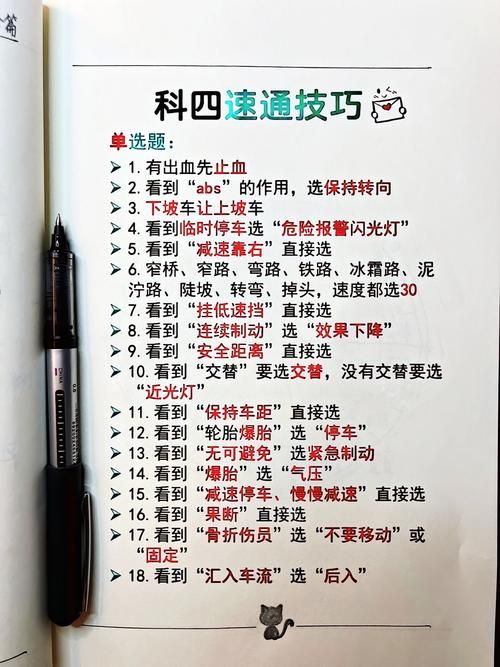 篇
科四速通技巧
单选题：
➤ 1. 有出血先止血
➤ 2. 看到“abs”的作用，选保持转向
➤ 3. 下坡车让上坡车
➤ 4. 看到临时停车选“危险报警闪光灯”
➤ 5. 看到“减速靠右”直接选
➤ 6. 窄桥、窄路、弯路、铁路、冰霜路、泥
泞路、陡坡、转弯、掉头，速度都选30
➤ 7. 看到“挂低速挡”直接选
➤ 8. 看到“连续制动”选“效果下降”
➤ 9. 看到“安全距离”直接选
➤ 10. 看到“交替”要选交替，没有交替要选
“近光灯”
➤ 11. 看到“保持车距”直接选
➤ 12. 看到“轮胎爆胎”选“停车”
➤ 13. 看到“无可避免”选紧急制动
➤ 14. 看到“爆胎”选“气压”
➤ 15. 看到“减速停车、慢慢减速”直接选
➤ 16. 看到“果断”直接选
➤ 17. 看到“骨折伤员”选“不要移动”或
“固定”
➤ 18. 看到“汇入车流”选“后入”